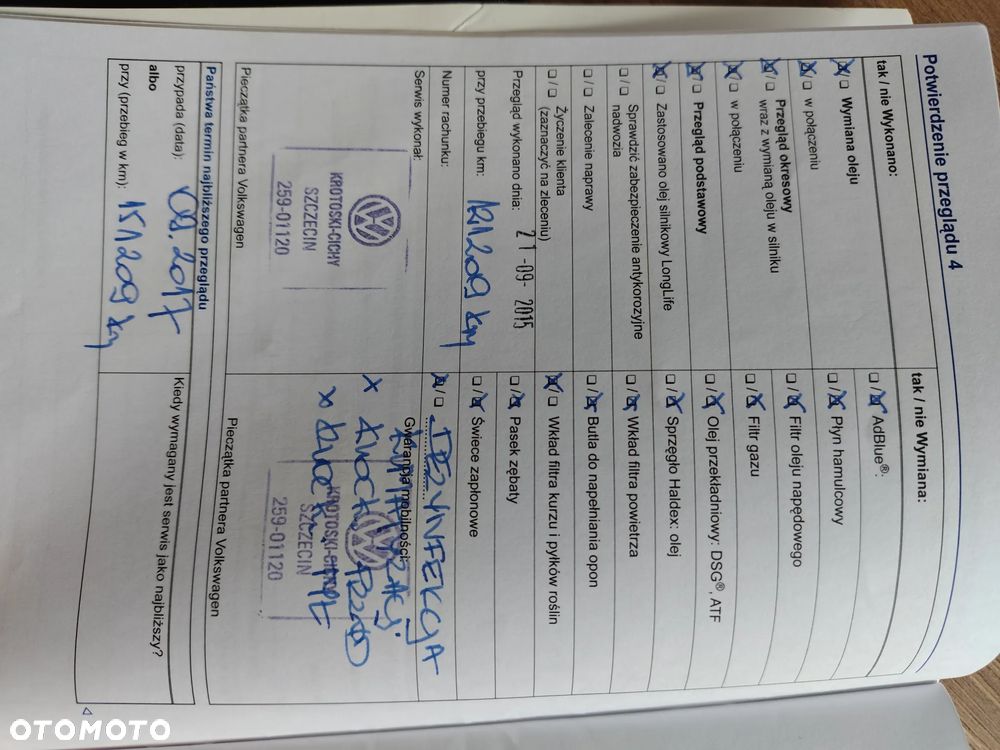 Potwierdzenie przeglądu 4
tak / nie Wykonano:
☒ / ☐ Wymiana oleju
☒ / ☐ w połączeniu
☒ / ☐ Przegląd okresowy
wraz z wymianą oleju w silniku
☒ / ☐ w połączeniu
☒ / ☐ Przegląd podstawowy
☒ / ☐ Zastosowano olej silnikowy LongLife
☐ / ☐ Sprawdzić zabezpieczenie antykorozyjne
nadwozia
☐ / ☐ Zalecenie naprawy
☐ / ☐ Życzenie klienta
(zaznaczyć na zleceniu)
Przegląd wykonano dnia: 21 -09- 2015
przy przebiegu km: 121209 km
Numer rachunku:
Serwis wykonał:
KROTOSKI-CICHY
SZCZECIN
259-01120
Pieczątka partnera Volkswagen
tak / nie Wymiana:
☐ / ☒ AdBlue®:
☐ / ☒ Płyn hamulcowy
☐ / ☒ Filtr oleju napędowego
☐ / ☒ Filtr gazu
☐ / ☒ Olej przekładniowy: DSG®, ATF
☐ / ☒ Sprzęgło Haldex: olej
☐ / ☒ Wkład filtra powietrza
☐ / ☒ Butla do napełniania opon
☒ / ☐ Wkład filtra kurzu i pyłków roślin
☐ / ☒ Pasek zębaty
☐ / ☒ Świece zapłonowe
☒ / ☐ DEZYNFEKCJA
Gwarancja mobilności:
KLIMATYZACJI
x KLOCKI PRZÓD
x
KROTOSKI-CICHY
SZCZECIN
259-01120
Pieczątka partnera Volkswagen
Państwa termin najbliższego przeglądu
przypada (data): 09.2017
albo
przy (przebieg w km): 151209 km
Kiedy wymagany jest serwis jako najbliższy?
4
OTOMOTO